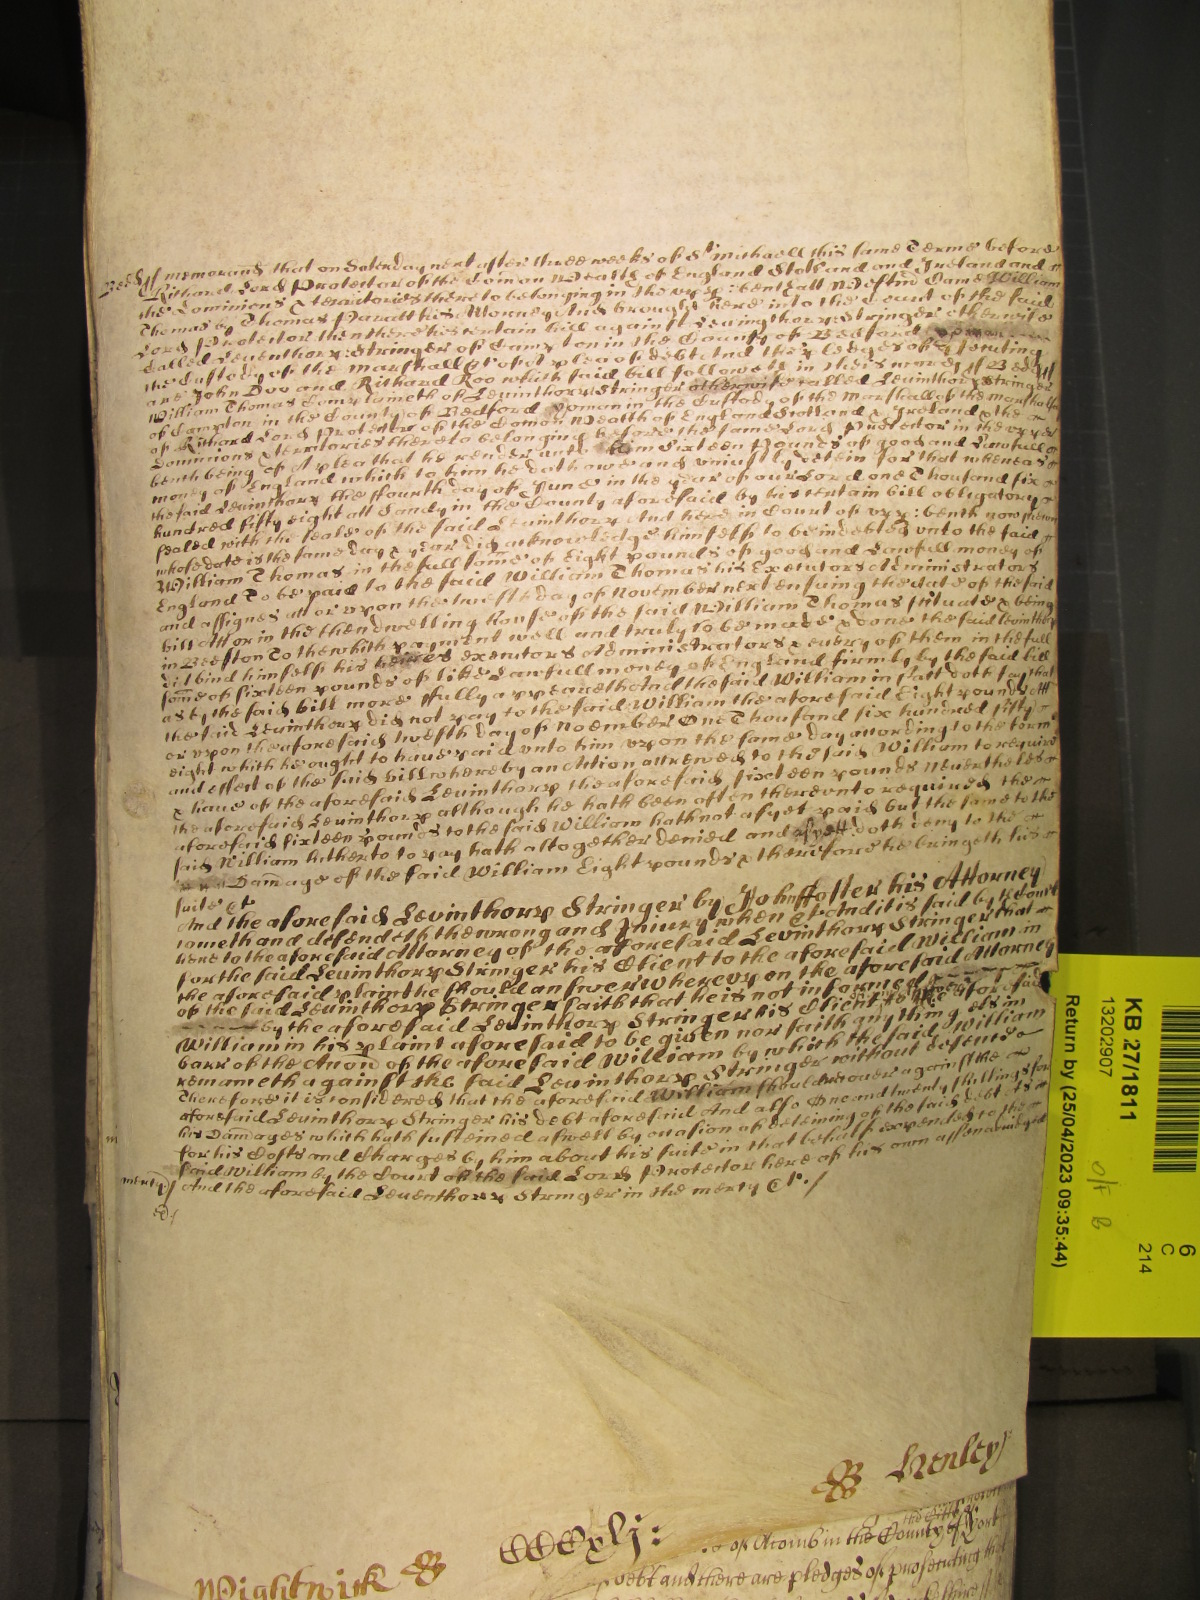 Bedd/ff memorand that on Saterday next after three weeks of St michaell this same Terme before
Richard Lord Protector of the Comon Wealth of England Scotland and Ireland and
the Dominions & territories thereto belonging in the upp: bench att Westmr Came William
Thomas by Thomas Parratt his Attorney And brought here into the Court of the said
Lord Protector then there his certain bill against Leuinthorp: Stringer otherwise
Called Leuenthorp: Stringer of Campton in the County of Bedford
the Custody of the Marshall &c of A plea of debt And the pledges of prosecuting
are John Doo and Richard Roo which said bill followeth in theis words ff Bedd ff
William Thomas Complaineth of Leuinthorp Stringer otherwise called Leuinthorp Stringer
of Campton in the County of Bedford yoman in the Custody of the Marshall of the Marshalsea
of Richard Lord Protector of the Comon Wealth of England Scotland & Ireland & the
Dominions & territories thereto belonging before the same Lord Protector in the upper
bench being of A plea that he render unto him Sixteen Pounds of good and Lawfull
money of England which to him he doth owe and uniustly detein for that whereas
the said Leuinthorp the ffourth day of June in the year of our Lord one Thousand six
hundred fifty eight att Sandy in the County aforesaid by his certain bill obligatory
sealed with the seale of the said Leuinthorp And here in Court of upp: bench now shewn
whose date is the same day & year did acknowledge himself to be indebted unto the said
William Thomas in the full some of Eight pounds of good and Lawfull money of
England To be paid to the said William Thomas his Executors Administrators
and assignes att or upon the twelfth day of November next ensuing the date of the said
bill Att or in the then dwelling house of the said William Thomas scituate & being
in Beeston To the which payment well and truly to be made & done the said Leuinthorp
did bind himself his heires executors Administrators & every of them in the full
some of Sixteen pounds of like Lawfull money of England firmly by the said bill
as by the said bill more ffully appeareth And the said William in fact doth say that
the said Leuinthorp did not pay to the said William the aforesaid Eight pounds Att
or upon the aforesaid twelfth day of Nouember One Thousand six hundred fifty
eight which he ought to have paid unto him upon the same day according to the form
and effect of the said bill whereby an Action accrewed to the said William to require
& have of the aforesaid Leuinthorp the aforesaid sixteen pounds Neuertheles
the aforesaid Leuinthorp although he hath been often thereunto required the
aforesaid Sixteen pounds to the said William hath not as yet paid but the same to the
said William hitherto to pay hath altogether denied and as yett doth deny to the
Damage of the said William Eight pounds & therefore he bringeth his
suite &c
And the aforesaid Levinthorp Stringer by John ffoster his Attorney
cometh and defendeth the wrong and Iniury when &c And it is said by the Court
here to the aforesaid Attorney of the aforesaid Levinthorp Stringer that
for the said Levinthorp Stringer his Client to the aforesaid William in
the aforesaid plaint he should answer Whereupon the aforesaid Attorney
of the said Leuinthorp Stringer saith that he is not informed
by the aforesaid Levinthorp Stringer his Client to the aforesaid
William in his plaint aforesaid to be given nor saith anything els in
barr of the Accon of the aforesaid William by which the said William
remaineth against the said Levinthorp Stringer without defence
Therefore it is considered that the aforesaid William should recover against the
aforesaid Leuinthorp Stringer his debt aforesaid And also One and twenty shillings for
his Damages which hath susteined aswell by occasion of deteining of the said debt as
for his Costs and Charges by him about his suite in that behalf expended to the
said William by the Court of the said Lord Protector here of his own assent adiudged
mercy/ And the aforesaid Leuenthorp Stringer in the mercy &c./
Henley
Wightwick
of Acomb in the County of York
debt and there are pledges of prosecuting
KB 27/1811
13202907
Return by (25/04/2023 09:35:44)
O/F B
6
C
214